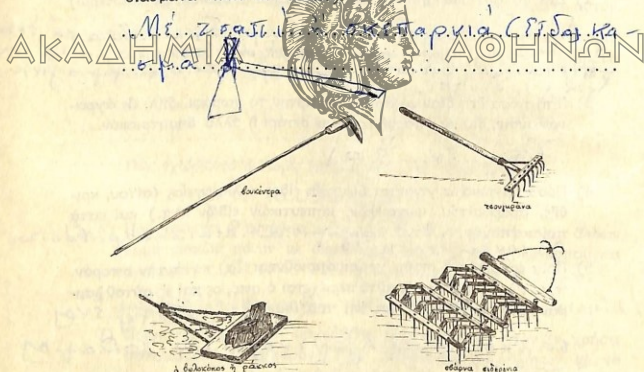 Μέ τσαπί ή σκεπαρνιά (είδος κα-
σμά
ΑΚΑΔΗΜΙΑ ΑΘΗΝΩΝ
βουκέντρα
τσουγκράνα
ὁ βωλοκόπος ἤ ράκκος
σβάρνα σιδερένια